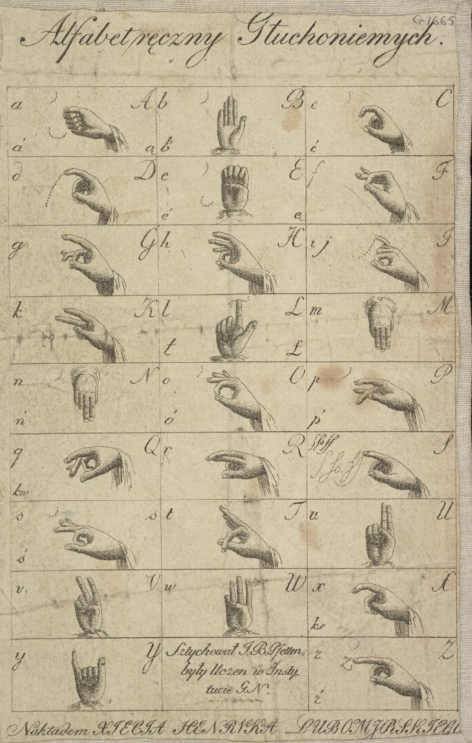 G.1665
Alfabet ręczny Głuchoniemych.
a A b B c C
á ą b́ ć
d D e E f F
é ę
g G h H i j I
k K l L m M
ł Ł
n N o O p P
ń ó ṕ
q Q r R S
kw
s s t T u U
ś
v V w W x X
ks
y Y z Z
ż
Sztychował J.B. Pfetten,
były Uczen w Insty
tucie G.N.
Nakładem XIĘCIA HENRYKA LUBOMIRSKIEGO